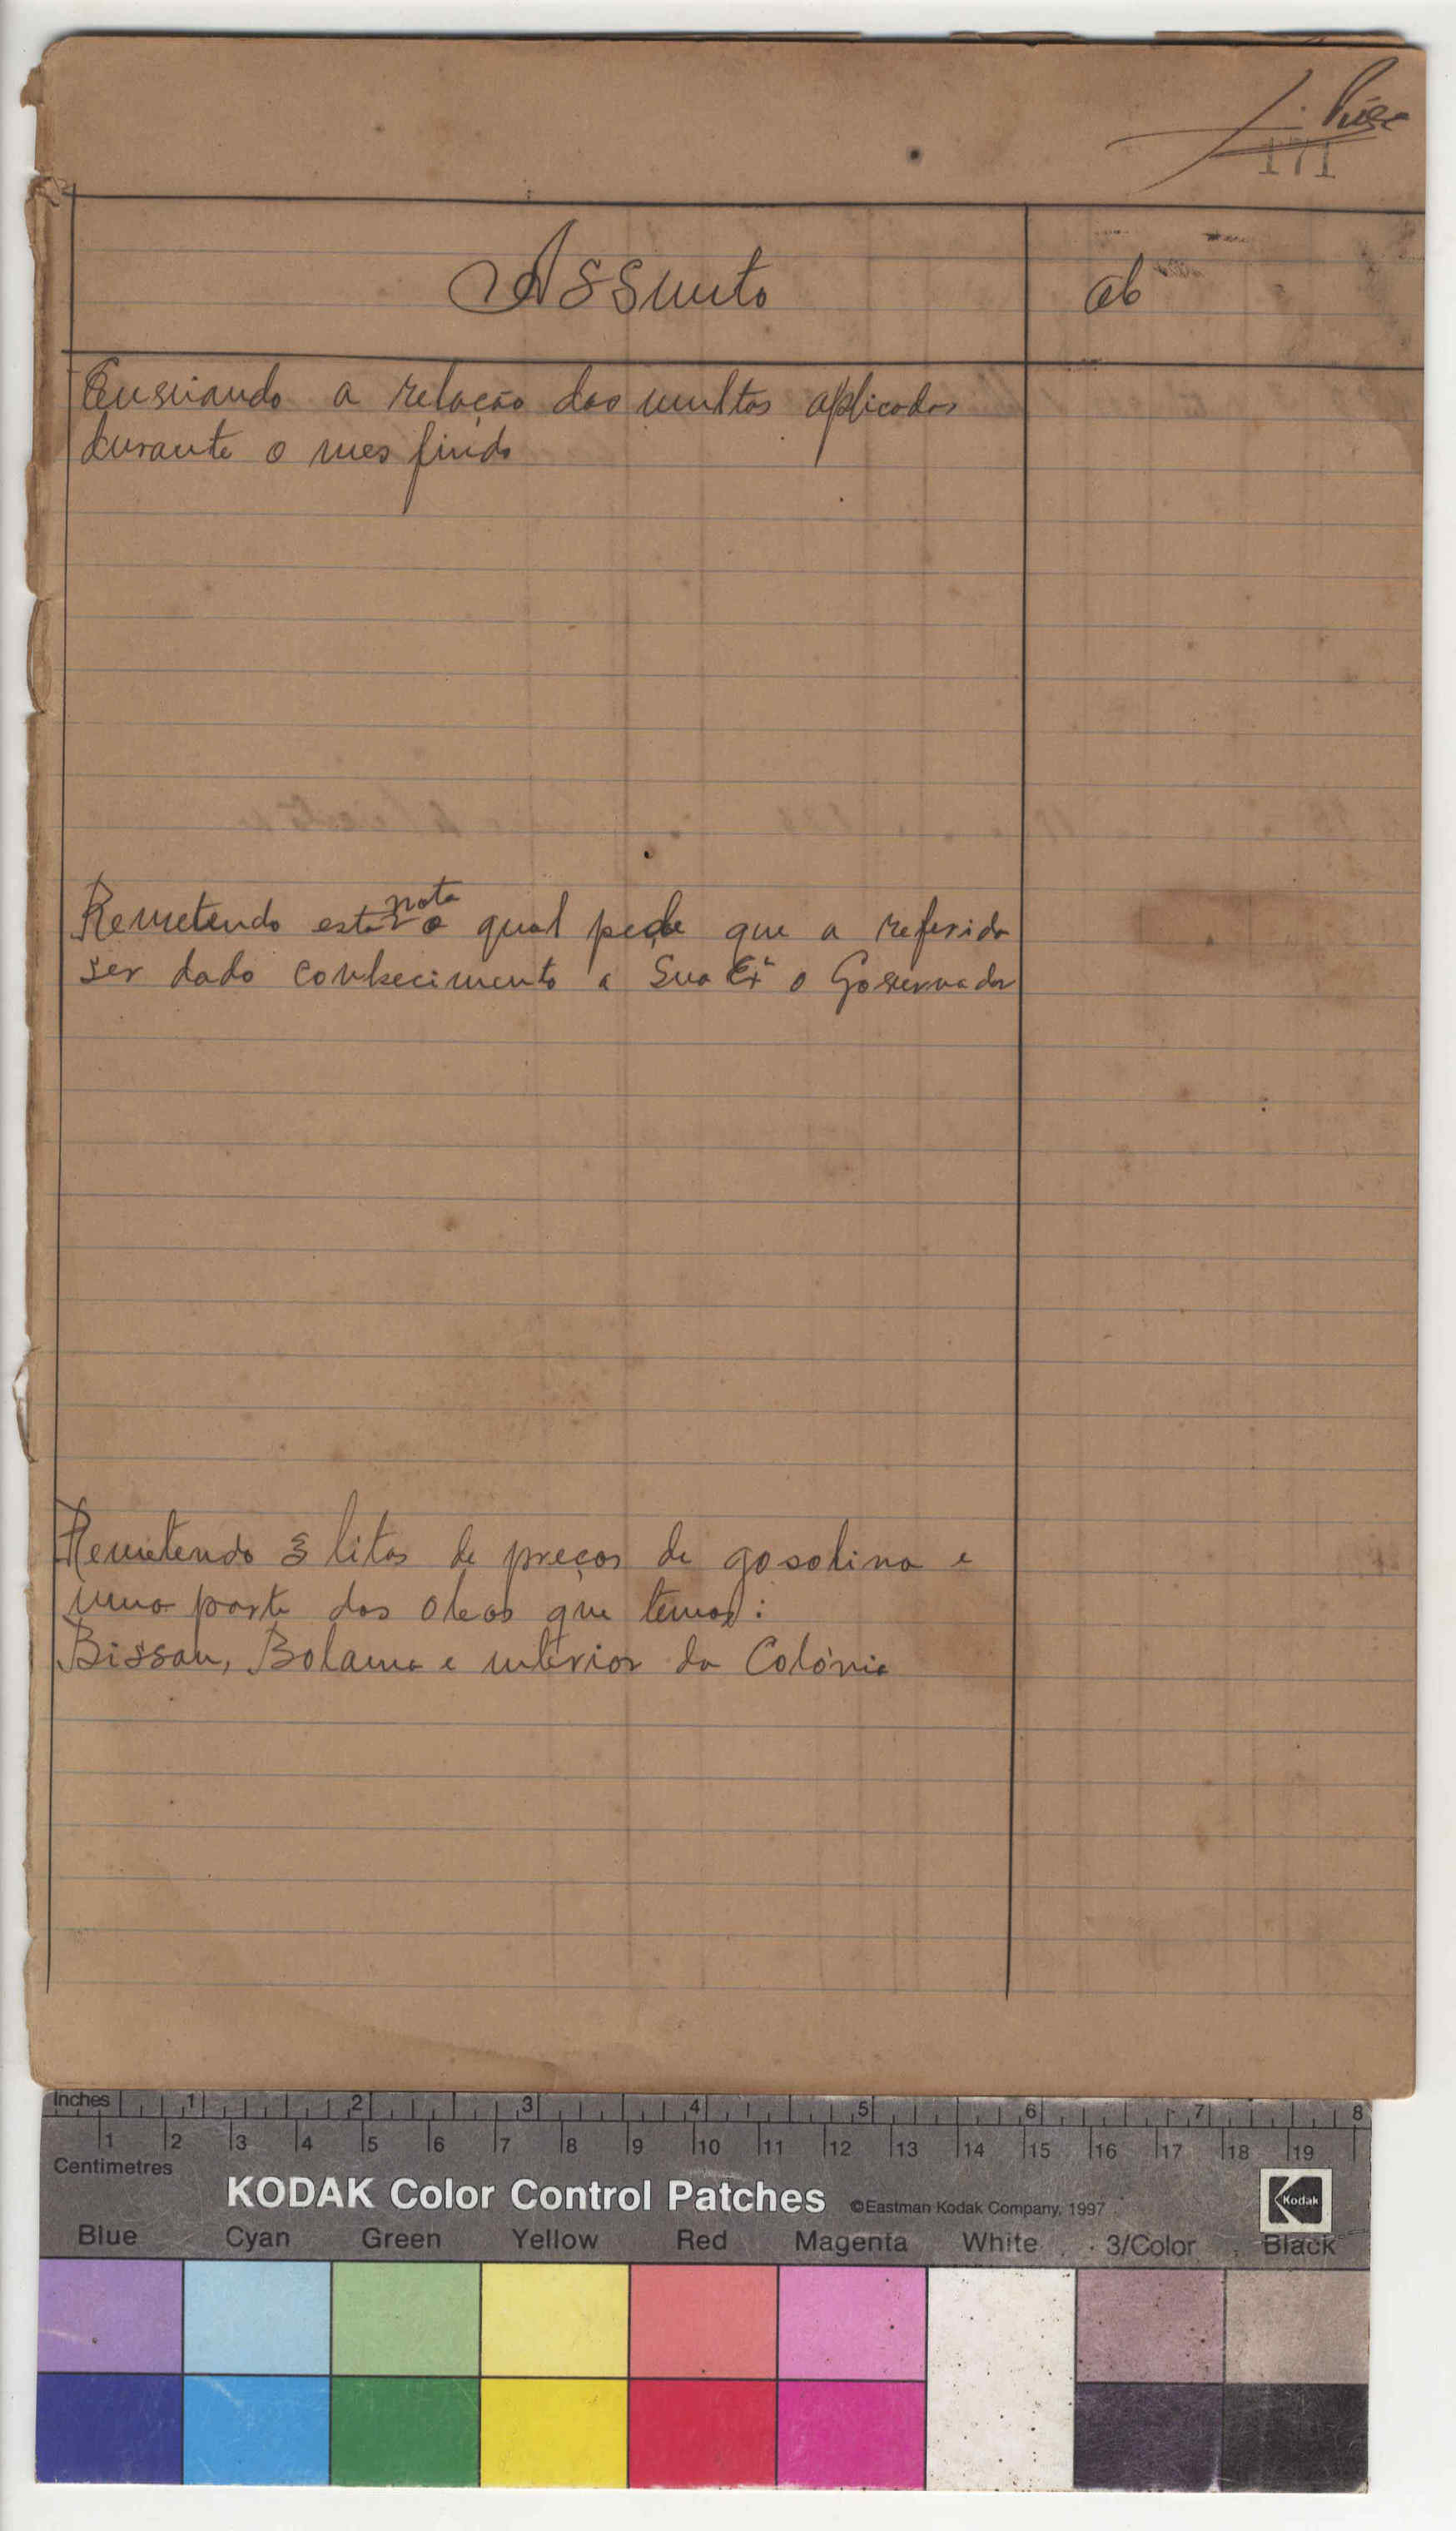 171
Assunto
ab
Enviando a relação das multas aplicadas
durante o mes findo
nota
Remetendo esta a qual pede que a referida
ser dado conhecimento a Sua Exª o Governador
Remetendo 3 litas de preços de gasolina e
uma parte dos oleos que temos:
Bissau, Bolama e interior da Colónia
Inches 1 2 3 4 5 6 7 8
1 2 3 4 5 6 7 8 9 10 11 12 13 14 15 16 17 18 19
Centimetres
KODAK Color Control Patches ©Eastman Kodak Company, 1997 Kodak
Blue Cyan Green Yellow Red Magenta White 3/Color Black